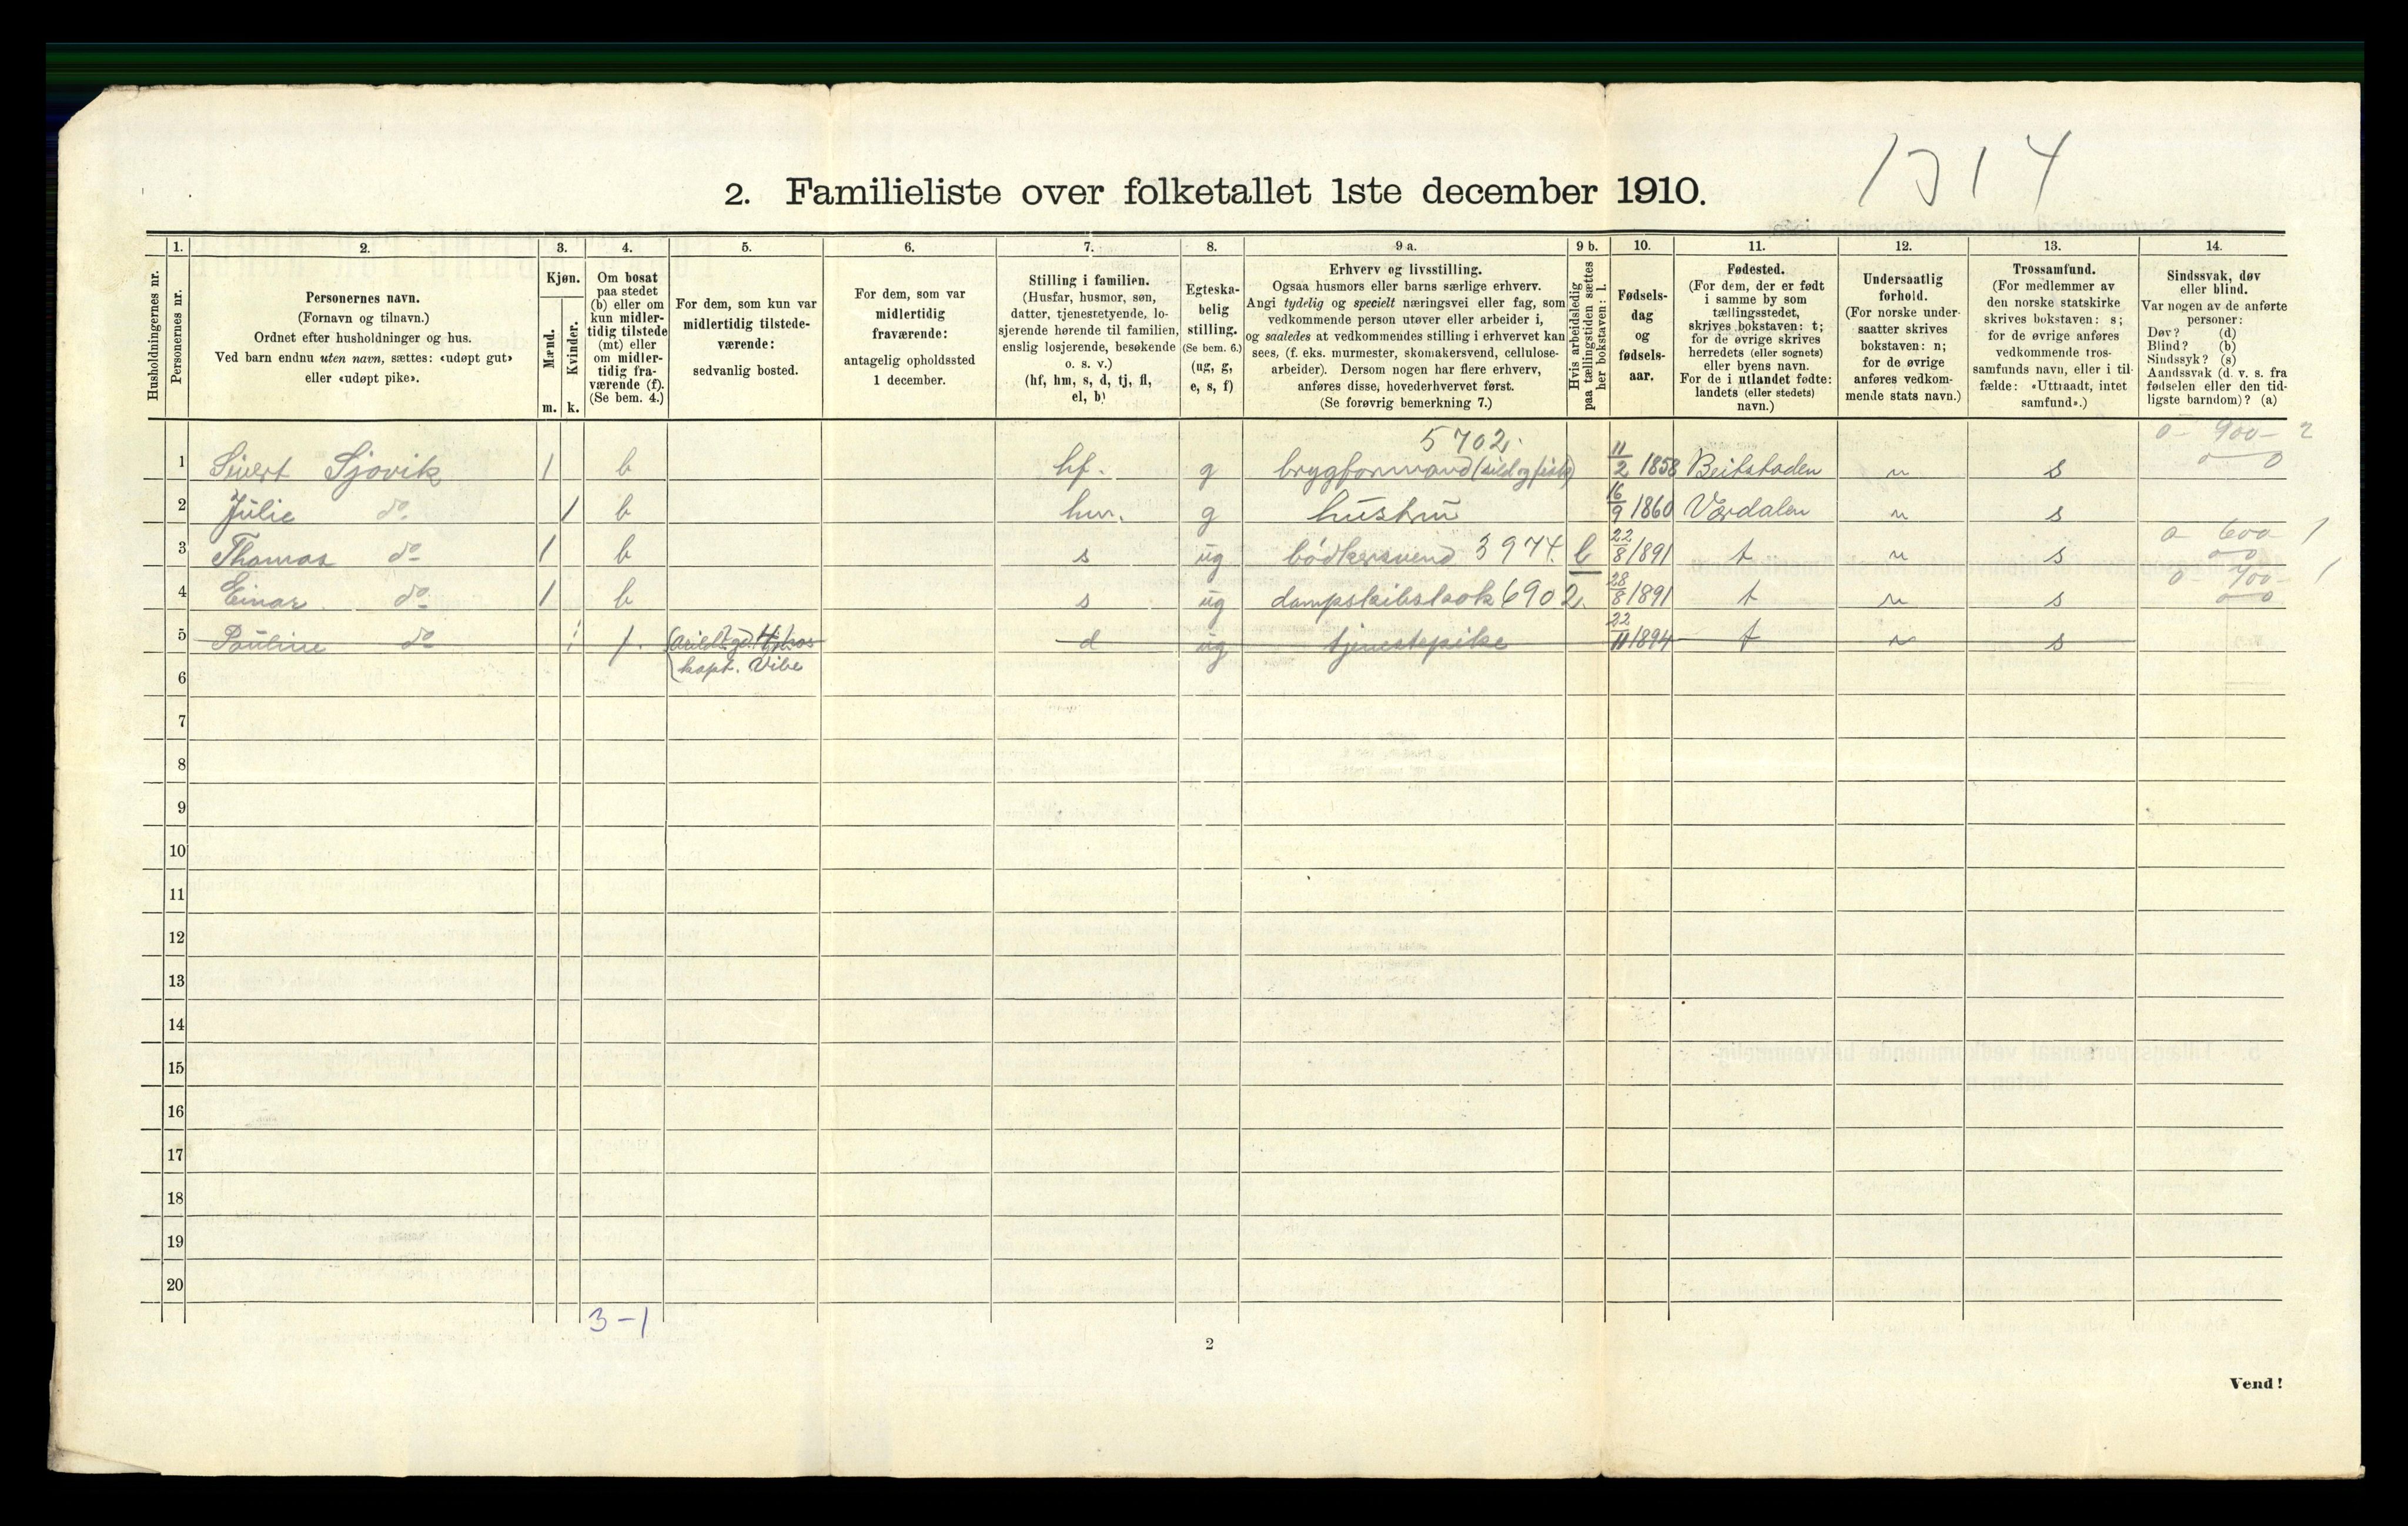 1314
2. Familieliste over folketallet 1ste december 1910.
Husholdningernes nr.
1.
Personernes nr.
2.
Personernes navn.
(Fornavn og tilnavn.)
Ordnet efter husholdninger og hus.
Ved barn endnu uten navn, sættes: «udøpt gut»
eller «udøpt pike».
3.
Kjøn.
Mænd.
m.
Kvinder.
k.
4.
Om bosat
paa stedet
(b) eller om
kun midler-
tidig tilstede
(mt) eller
om midler-
tidig fra-
værende (f).
(Se bem. 4.)
5.
For dem, som kun var
midlertidig tilstede-
værende:
sedvanlig bosted.
6.
For dem, som var
midlertidig
fraværende:
antagelig opholdssted
1 december.
7.
Stilling i familien.
(Husfar, husmor, søn,
datter, tjenestetyende, lo-
sjerende hørende til familien,
enslig losjerende, besøkende
o. s. v.)
(hf, hm, s, d, tj, fl,
el, b)
8.
Egteska-
belig
stilling.
(Se bem. 6.)
(ug, g,
e, s, f)
9 a.
Erhverv og livsstilling.
Ogsaa husmors eller barns særlige erhverv.
Angi tydelig og specielt næringsvei eller fag, som
vedkommende person utøver eller arbeider i,
og saaledes at vedkommendes stilling i erhvervet kan
sees, (f. eks. murmester, skomakersvend, cellulose-
arbeider). Dersom nogen har flere erhverv,
anføres disse, hovederhvervet først.
(Se forøvrig bemerkning 7.)
9 b.
Hvis arbeidsledig
paa tællingstiden sættes
her bokstaven: l.
10.
Fødsels-
dag
og
fødsels-
aar.
11.
Fødested.
(For dem, der er født
i samme by som
tællingsstedet,
skrives bokstaven: t;
for de øvrige skrives
herredets (eller sognets)
eller byens navn.
For de i utlandet fødte:
landets (eller stedets)
navn.)
12.
Undersaatlig
forhold.
(For norske under-
saatter skrives
bokstaven: n;
for de øvrige
anføres vedkom-
mende stats navn.)
13.
Trossamfund.
(For medlemmer av
den norske statskirke
skrives bokstaven: s;
for de øvrige anføres
vedkommende tros-
samfunds navn, eller i til-
fælde: «Uttraadt, intet
samfund».)
14.
Sindssvak, døv
eller blind.
Var nogen av de anførte
personer:
Døv? (d)
Blind? (b)
Sindssyk? (s)
Aandssvak (d. v. s. fra
fødselen eller den tid-
ligste barndom)? (a)
5702. 0- 900- 2
1 Sivert Sjovik 1 b hf. g brygformand (sild og fisk) 11/2 1858 Beitstaden n s 0 0
2 Julie do 1 b hm. g hustru 16/9 1860 Værdalen n s
0 600 1
3 Thomas do 1 b s ug bødkersvend 3974. l 22/8 1891 t n s 0 0
0- 400- 1
4 Einar do 1 b s ug dampskibskok 6902. 28/8 1891 t n s 0 0
5 Pauline do 1 f. hos d ug tjenestepike 22/11 1894 t n s
6 kapt. Vibe
7
8
9
10
11
12
13
14
15
16
17
18
19
20
3-1
2
Vend!